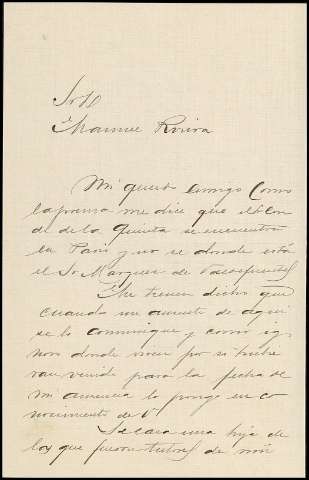 Sr D
Manuel Rivera
Mi querido amigo Como
la prensa me dice que el Con
de de la Quinta se encuentra
en Paris y no se donde está
el Sr Marques de
Me tienen dicho que
cuando me ausente de aqui
se lo comunique y como ig
noro donde viven por si hubie
ran venido para la fecha de
mi ausencia lo pongo en co
nocimiento de V.
Se casa una hija de
los que fueron tutores de mis